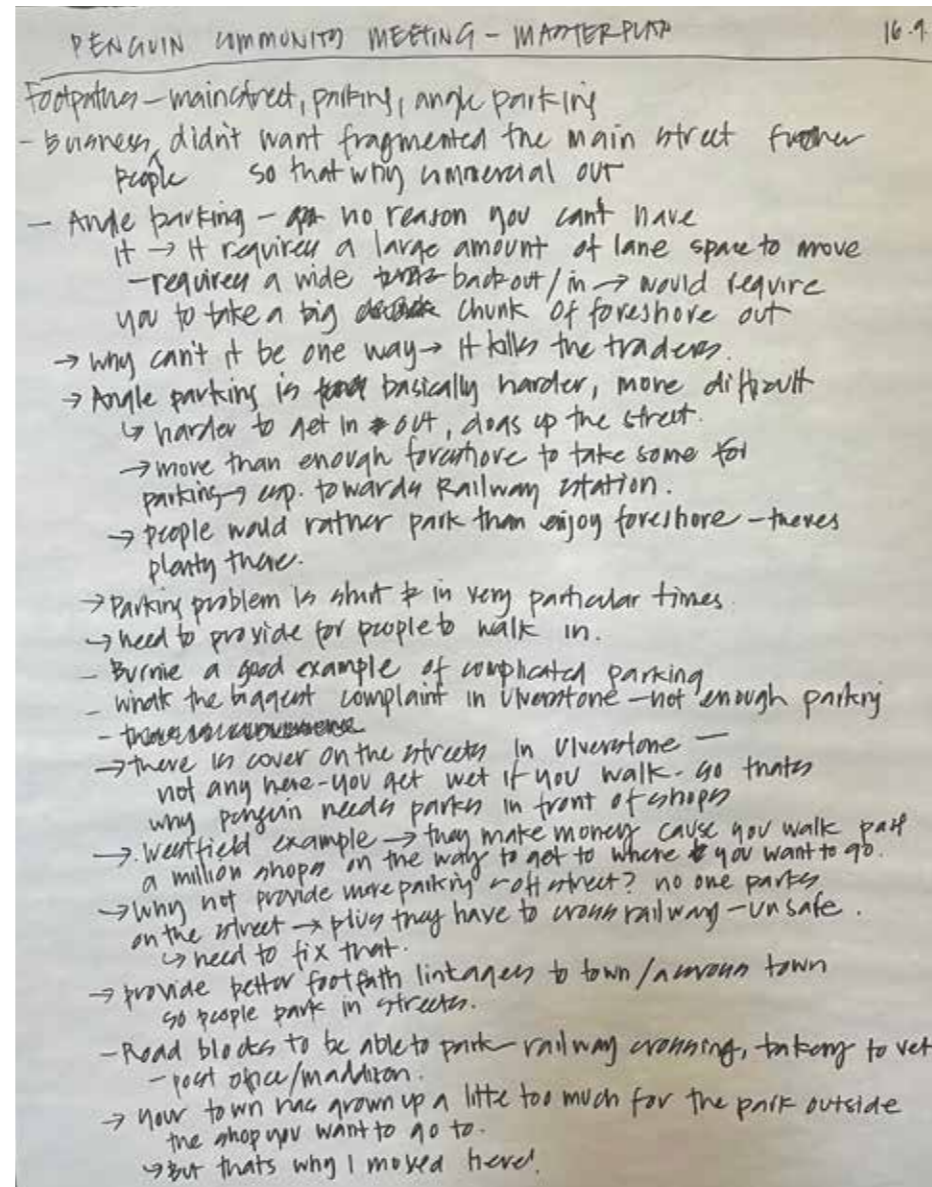 PENGUIN COMMUNITY MEETING - MASTERPLAN 16.9
Footpaths - mainstreet, parking, angle parking
- Business, didn't want fragmented the main street further
people so that why commercial out
- Angle parking - no reason you cant have
it → it requires a large amount of lane space to move
- requires a wide back out/in → would require
you to take a big chunk of foreshore out
→ why can't it be one way → it kills the traders.
→ Angle parking is basically harder, more difficult
↳ harder to get in & out, clogs up the street.
→ more than enough foreshore to take some for
parking → esp. towards Railway station.
→ people would rather park than enjoy foreshore - theres
plenty there.
→ Parking problem is short & in very particular times.
↳ need to provide for people to walk in.
- Burnie a good example of complicated parking
- whats the biggest complaint in Ulverstone - not enough parking
-
→ there is cover on the streets in Ulverstone -
not any here - you get wet if you walk - so thats
why penguin needs parks in front of shops
→ Westfield example → they make money cause you walk past
a million shops on the way to get to where you want to go.
→ why not provide more parking - off street? no one parks
on the street → plus they have to cross railway - unsafe.
↳ need to fix that.
→ provide better footpath linkages to town / around town
so people park in streets.
- Road blocks to be able to park - railway crossing, bakery to vet
- post office/maddison.
→ your town has grown up a litte too much for the park outside
the shop you want to go to.
↳ But thats why I moved here!